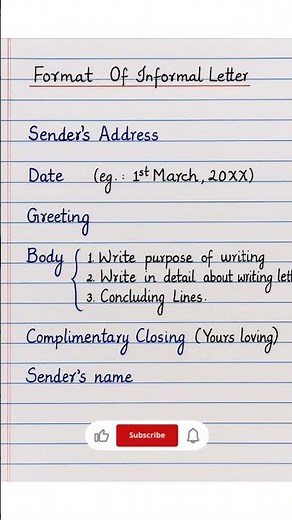 Format Of Informal Letter
Sender's Address
Date (eg.: 1st March, 20XX)
Greeting
Body { 1. Write purpose of writing
2. Write in detail about writing lett
3. Concluding Lines.
Complimentary Closing (Yours loving)
Sender's name
Subscribe